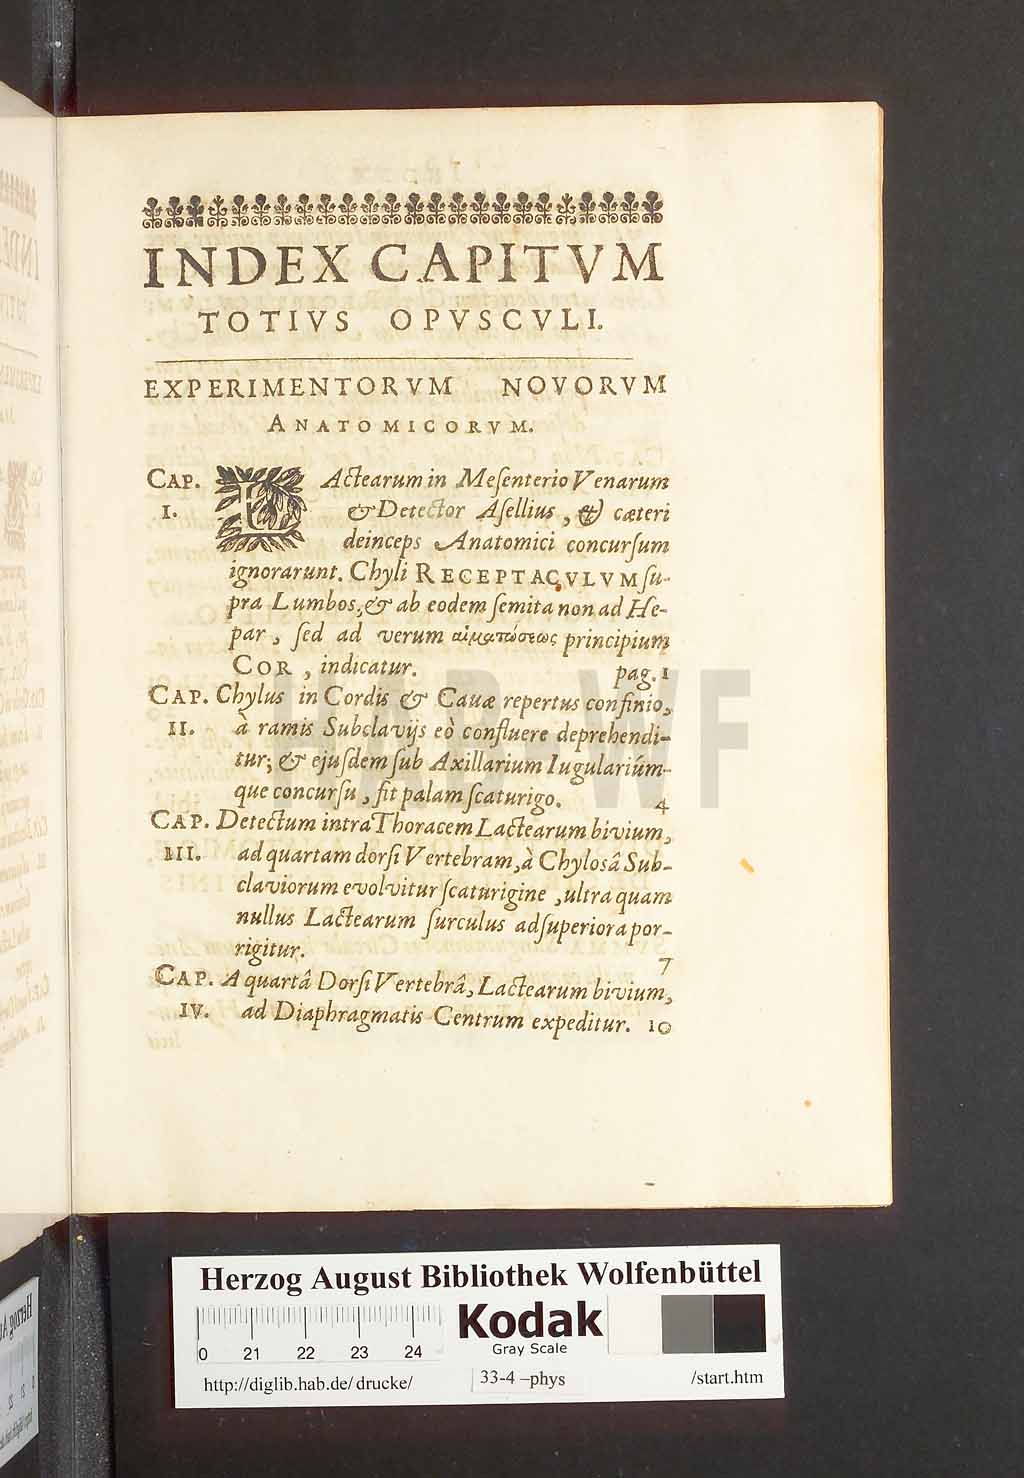 INDEX CAPITVM
TOTIVS OPVSCVLI.
EXPERIMENTORVM NOVORVM
ANATOMICORVM.
CAP. LActearum in Meſenterio Venarum
I. & Detector Aſellius, & cæteri
deinceps Anatomici concurſum
ignorarunt. Chyli RECEPTACVLVM ſu-
pra Lumbos, & ab eodem ſemita non ad He-
par, ſed ad verum αἱματώσεως principium
COR, indicatur. pag. 1
CAP. Chylus in Cordis & Cauæ repertus confinio,
II. à ramis Subclavijs eò confluere deprehendi-
tur; & ejuſdem ſub Axillarium Iugulariúm-
que concurſu, fit palam ſcaturigo. 4
CAP. Detectum intra Thoracem Lactearum bivium,
III. ad quartam dorſi Vertebram, à Chylosâ Sub-
claviorum evolvitur ſcaturigine, ultra quam
nullus Lactearum ſurculus ad ſuperiora por-
rigitur. 7
CAP. A quartâ Dorſi Vertebrâ, Lactearum bivium,
IV. ad Diaphragmatis Centrum expeditur. 10
HAB WF
Herzog August Bibliothek Wolfenbüttel
Kodak
Gray Scale
0 21 22 23 24
http://diglib.hab.de/drucke/ 33-4-phys /start.htm